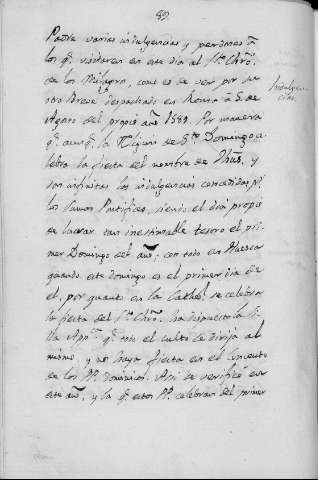 89.
Padre varias indulgencias y perdones á
los q.e visitaren en este dia al S.to Chro.
de los Milagros, como es de ver por su
Breve despachado en Roma á 5. de
Agosto del propio año 1589. Por manera
q.e aunq.e la Religion de S.to Domingo ce-
lebra la fiesta del nombre de Jhus. y
son infinitas las indulgencias concedidas p.r
los Sumos Pontifices, siendo el dia propio
de lucrar tan inestimable tesoro el pri-
mer Domingo del año; con todo en Huesca
quando este domingo es el primer dia de
el, por quanto en la Cathed.l se celebra
la fiesta del S.to Chro. ha dispuesto la Si-
lla App.ca q.e todo el culto se dirija al
mismo y no haya fiesta en el Convento
de los PP. Dominicos. Asi se verificó en
este año, y la q.e estos PP. celebran del primer
Indulgen-
cias.